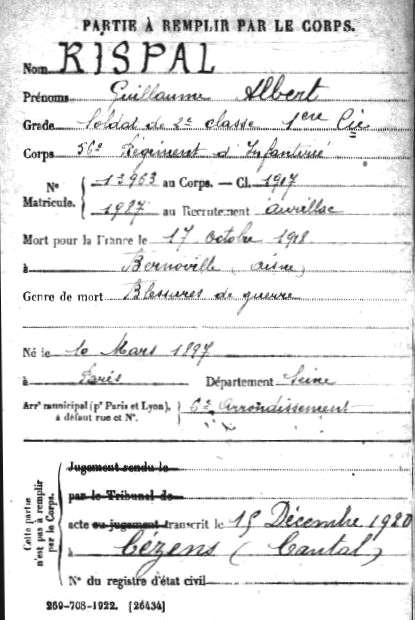 PARTIE À REMPLIR PAR LE CORPS.
Nom RISPAL
Prénoms Guillaume Albert
Grade Soldat de 2e classe 1ere Cie
Corps 56e Régiment d'Infanterie
Nº Matricule. { 12963 au Corps. — Cl. 1917
1927 au Recrutement Aurillac
Mort pour la France le 17 octobre 1918
à Bernoville (Aisne)
Genre de mort Blessures de guerre
Né le 10 Mars 1897
à Paris Département Seine
Arrt municipal (pr Paris et Lyon), à défaut rue et Nº. } 6e Arrondissement
Cette partie n'est pas à remplir par le Corps.
Jugement rendu le
par le Tribunal de
acte ou jugement transcrit le 15 Décembre 1920
à Cézens (Cantal)
Nº du registre d'état civil
269-708-1922. [26434]